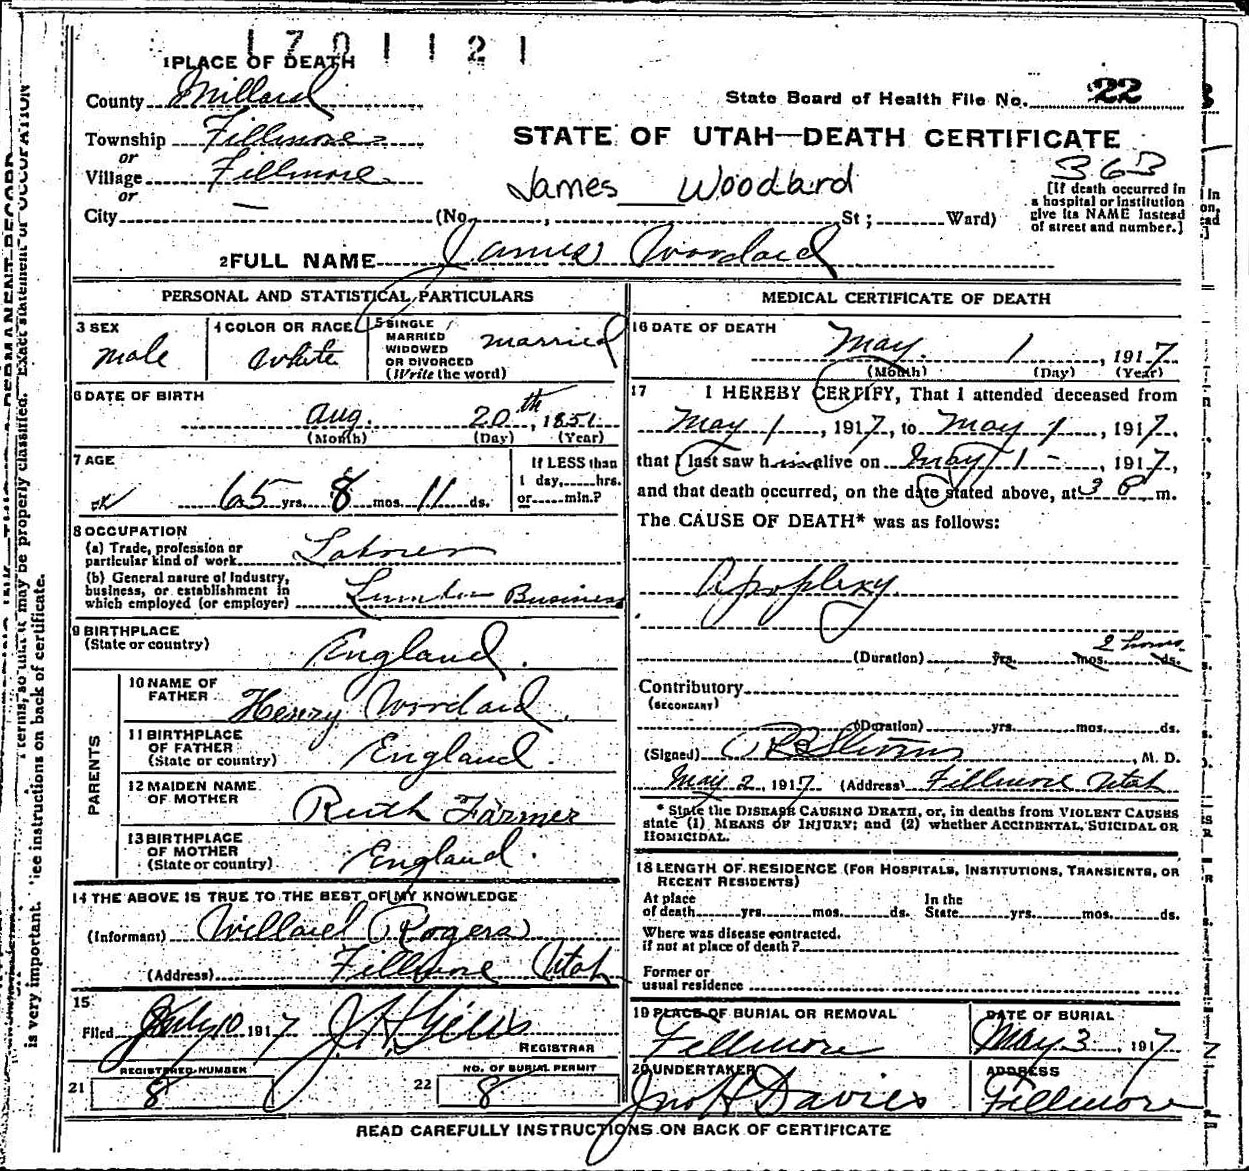 1701121
1 PLACE OF DEATH
County Millard
State Board of Health File No. 22
Township Fillmore
or
STATE OF UTAH—DEATH CERTIFICATE
Village Fillmore
or
James Woodard
363
City — (No. , St ; Ward)
[If death occurred in
a hospital or institution
give its NAME instead
of street and number.]
2 FULL NAME James Woodard
PERSONAL AND STATISTICAL PARTICULARS
3 SEX
male
4 COLOR OR RACE
White
5 SINGLE
MARRIED
WIDOWED
OR DIVORCED
(Write the word)
married
6 DATE OF BIRTH
Aug. 20th, 1851
(Month) (Day) (Year)
7 AGE
65 yrs. 8 mos. 11 ds.
If LESS than
1 day, hrs.
or min.?
8 OCCUPATION
(a) Trade, profession or
particular kind of work Laborer
(b) General nature of Industry,
business, or establishment in
which employed (or employer) Lumber Business
9 BIRTHPLACE
(State or country)
England.
PARENTS
10 NAME OF
FATHER Henry Woodard.
11 BIRTHPLACE
OF FATHER
(State or country) England.
12 MAIDEN NAME
OF MOTHER Ruth Farmer
13 BIRTHPLACE
OF MOTHER
(State or country) England.
14 THE ABOVE IS TRUE TO THE BEST OF MY KNOWLEDGE
(Informant) Willard Rogers
(Address) Fillmore Utah
15
Filed July 10, 1917
REGISTRAR
REGISTERED NUMBER
21 8
NO. OF BURIAL PERMIT
22 8
MEDICAL CERTIFICATE OF DEATH
16 DATE OF DEATH
May. 1, 1917
(Month) (Day) (Year)
17 I HEREBY CERTIFY, That I attended deceased from
May 1, 1917, to May 1, 1917,
that I last saw him alive on May 1 -, 1917,
and that death occurred, on the date stated above, at 3 P m.
The CAUSE OF DEATH* was as follows:
Apoplexy.
2 hours.
(Duration) yrs. mos. ds.
Contributory
(SECONDARY)
(Duration) yrs. mos. ds.
(Signed) , M. D.
May 2, 1917 (Address) Fillmore Utah
* State the DISEASE CAUSING DEATH, or, in deaths from VIOLENT CAUSES
state (1) MEANS OF INJURY; and (2) whether ACCIDENTAL, SUICIDAL OR
HOMICIDAL.
18 LENGTH OF RESIDENCE (FOR HOSPITALS, INSTITUTIONS, TRANSIENTS, OR
RECENT RESIDENTS)
At place
of death yrs. mos. ds.
In the
State yrs. mos. ds.
Where was disease contracted.
if not at place of death?
Former or
usual residence
19 PLACE OF BURIAL OR REMOVAL
Fillmore
DATE OF BURIAL
May 3, 1917
20 UNDERTAKER
Jno H Davies
ADDRESS
Fillmore
READ CAREFULLY INSTRUCTIONS ON BACK OF CERTIFICATE
terms, so that it may be properly classified. Exact statement of OCCUPATION
is very important. See instructions on back of certificate.